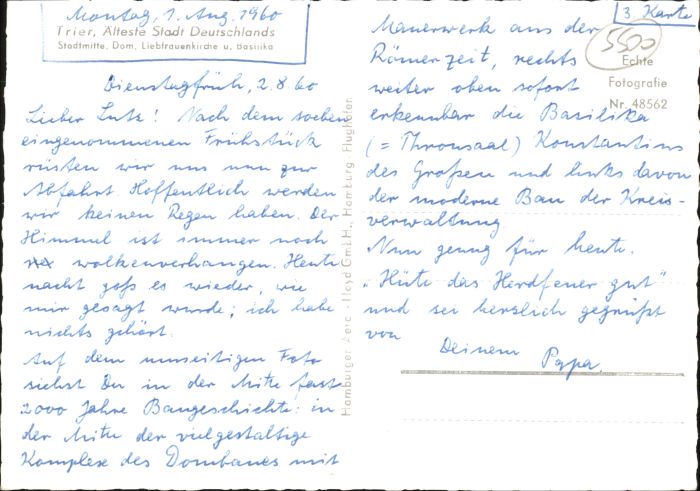 Montag, 1. Aug. 1960
Trier, Älteste Stadt Deutschlands
Stadtmitte, Dom, Liebfrauenkirche u. Basilika
Dienstagfrüh, 2.8.60
Lieber Lutz! Nach dem soeben
eingenommenen Frühstück
rüsten wir uns nun zur
Abfahrt Hoffentlich werden
wir keinen Regen haben. Der
Himmel ist immer noch
wolkenverhangen. Heute
nacht goß es wieder, wie
mir gesagt wurde; ich habe
nichts gehört.
Auf dem umseitigen Foto
siehst Du in der Mitte fast
2000 Jahre Baugeschichte: in
der Mitte der vielgestaltige
Komplexe des Dombaues mit
Hamburger Aero-Lloyd GmbH., Hamburg-Flughafen
3. Karte
5500
Echte
Fotografie
Nr. 48562
Mauerwerk aus der
Römerzeit, rechts
weiter oben sofort
erkennbar die Basilika
(= Thronsaal) Konstantins
des Großen und links davon
der moderne Bau der Kreis-
verwaltung
Nun genug für heute.
"Hüte das Herdfeuer gut"
und sei herzlich gegrüßt
von
Deinem
Papa